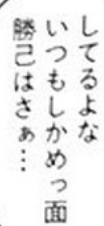 勝己はさぁ…
いつもしかめっ面
してるよな